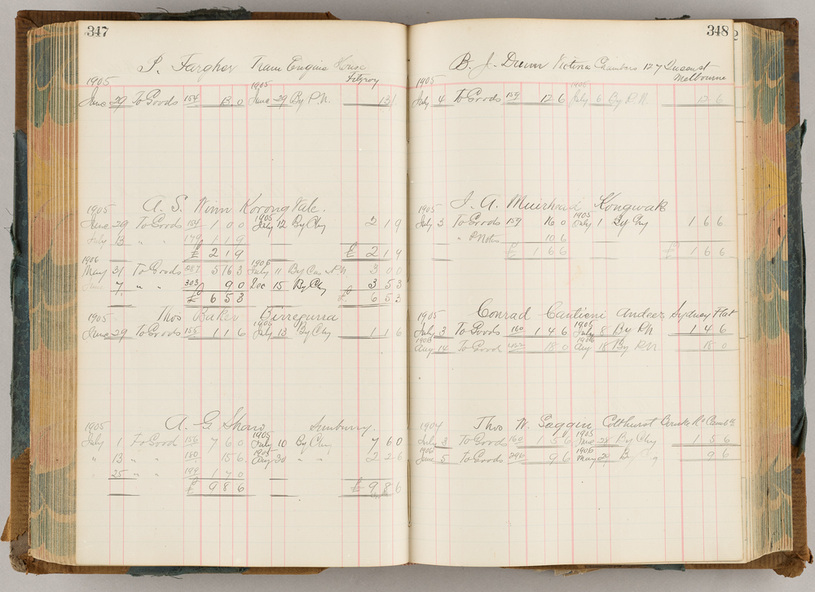 347
Tram Engine House
1905 Fitzroy
June 29 To Goods 154 13 0 1905 June 29 By P.N. 13
A. S. Korong Vale.
1905
June 29 To Goods 154 1 0 0 1905 July 12 By Chq 2 1 9
July 13 " " 1 1 9
£ 2 1 9 £ 2 1 9
1906
May 31 To Goods 5 16 3 1906 July 11 By 3 0 0
7 " " 303 9 0 Dec 15 By Chq 3 5 3
£ 6 5 3 £ 6 5 3
Thos Baker Birregurra
June 29 To Goods 155 1 1 6 1905 July 13 By Chq 1 1 6
A. G. Sunbury.
1905
July 1 To Goods 156 7 6 0 1905 July 10 By Chq 7 6 0
" 13 " " 180 15 6 1905 Aug 30 " " 2 2 6
" 25 " " 1 7 0
£ 9 8 6 £ 9 8 6
348
B. J. Dunn Victoria Chambers 127 Queen St
1905 Melbourne
July 4 To Goods 159 12 6 July 6 By P.N. 12 6
J. A. Muirhead Kongwak
1905
July 3 To Goods 159 16 0 1905 July 1 By Chq 1 6 6
" P Notes 10 6
£ 1 6 6 £ 1 6 6
Conrad Sydney Flat
1905
July 3 To Goods 160 1 4 6 1905 July 8 By PN 1 4 6
1906 Aug 14 To Goods 18 0 1906 Aug 18 By P.N 18 0
Thos W.
July 3 To Goods 160 1 5 6 1905 June 28 By Chq 1 5 6
1906 June 5 To Goods 290 9 6 1906 May 20 By " 9 6